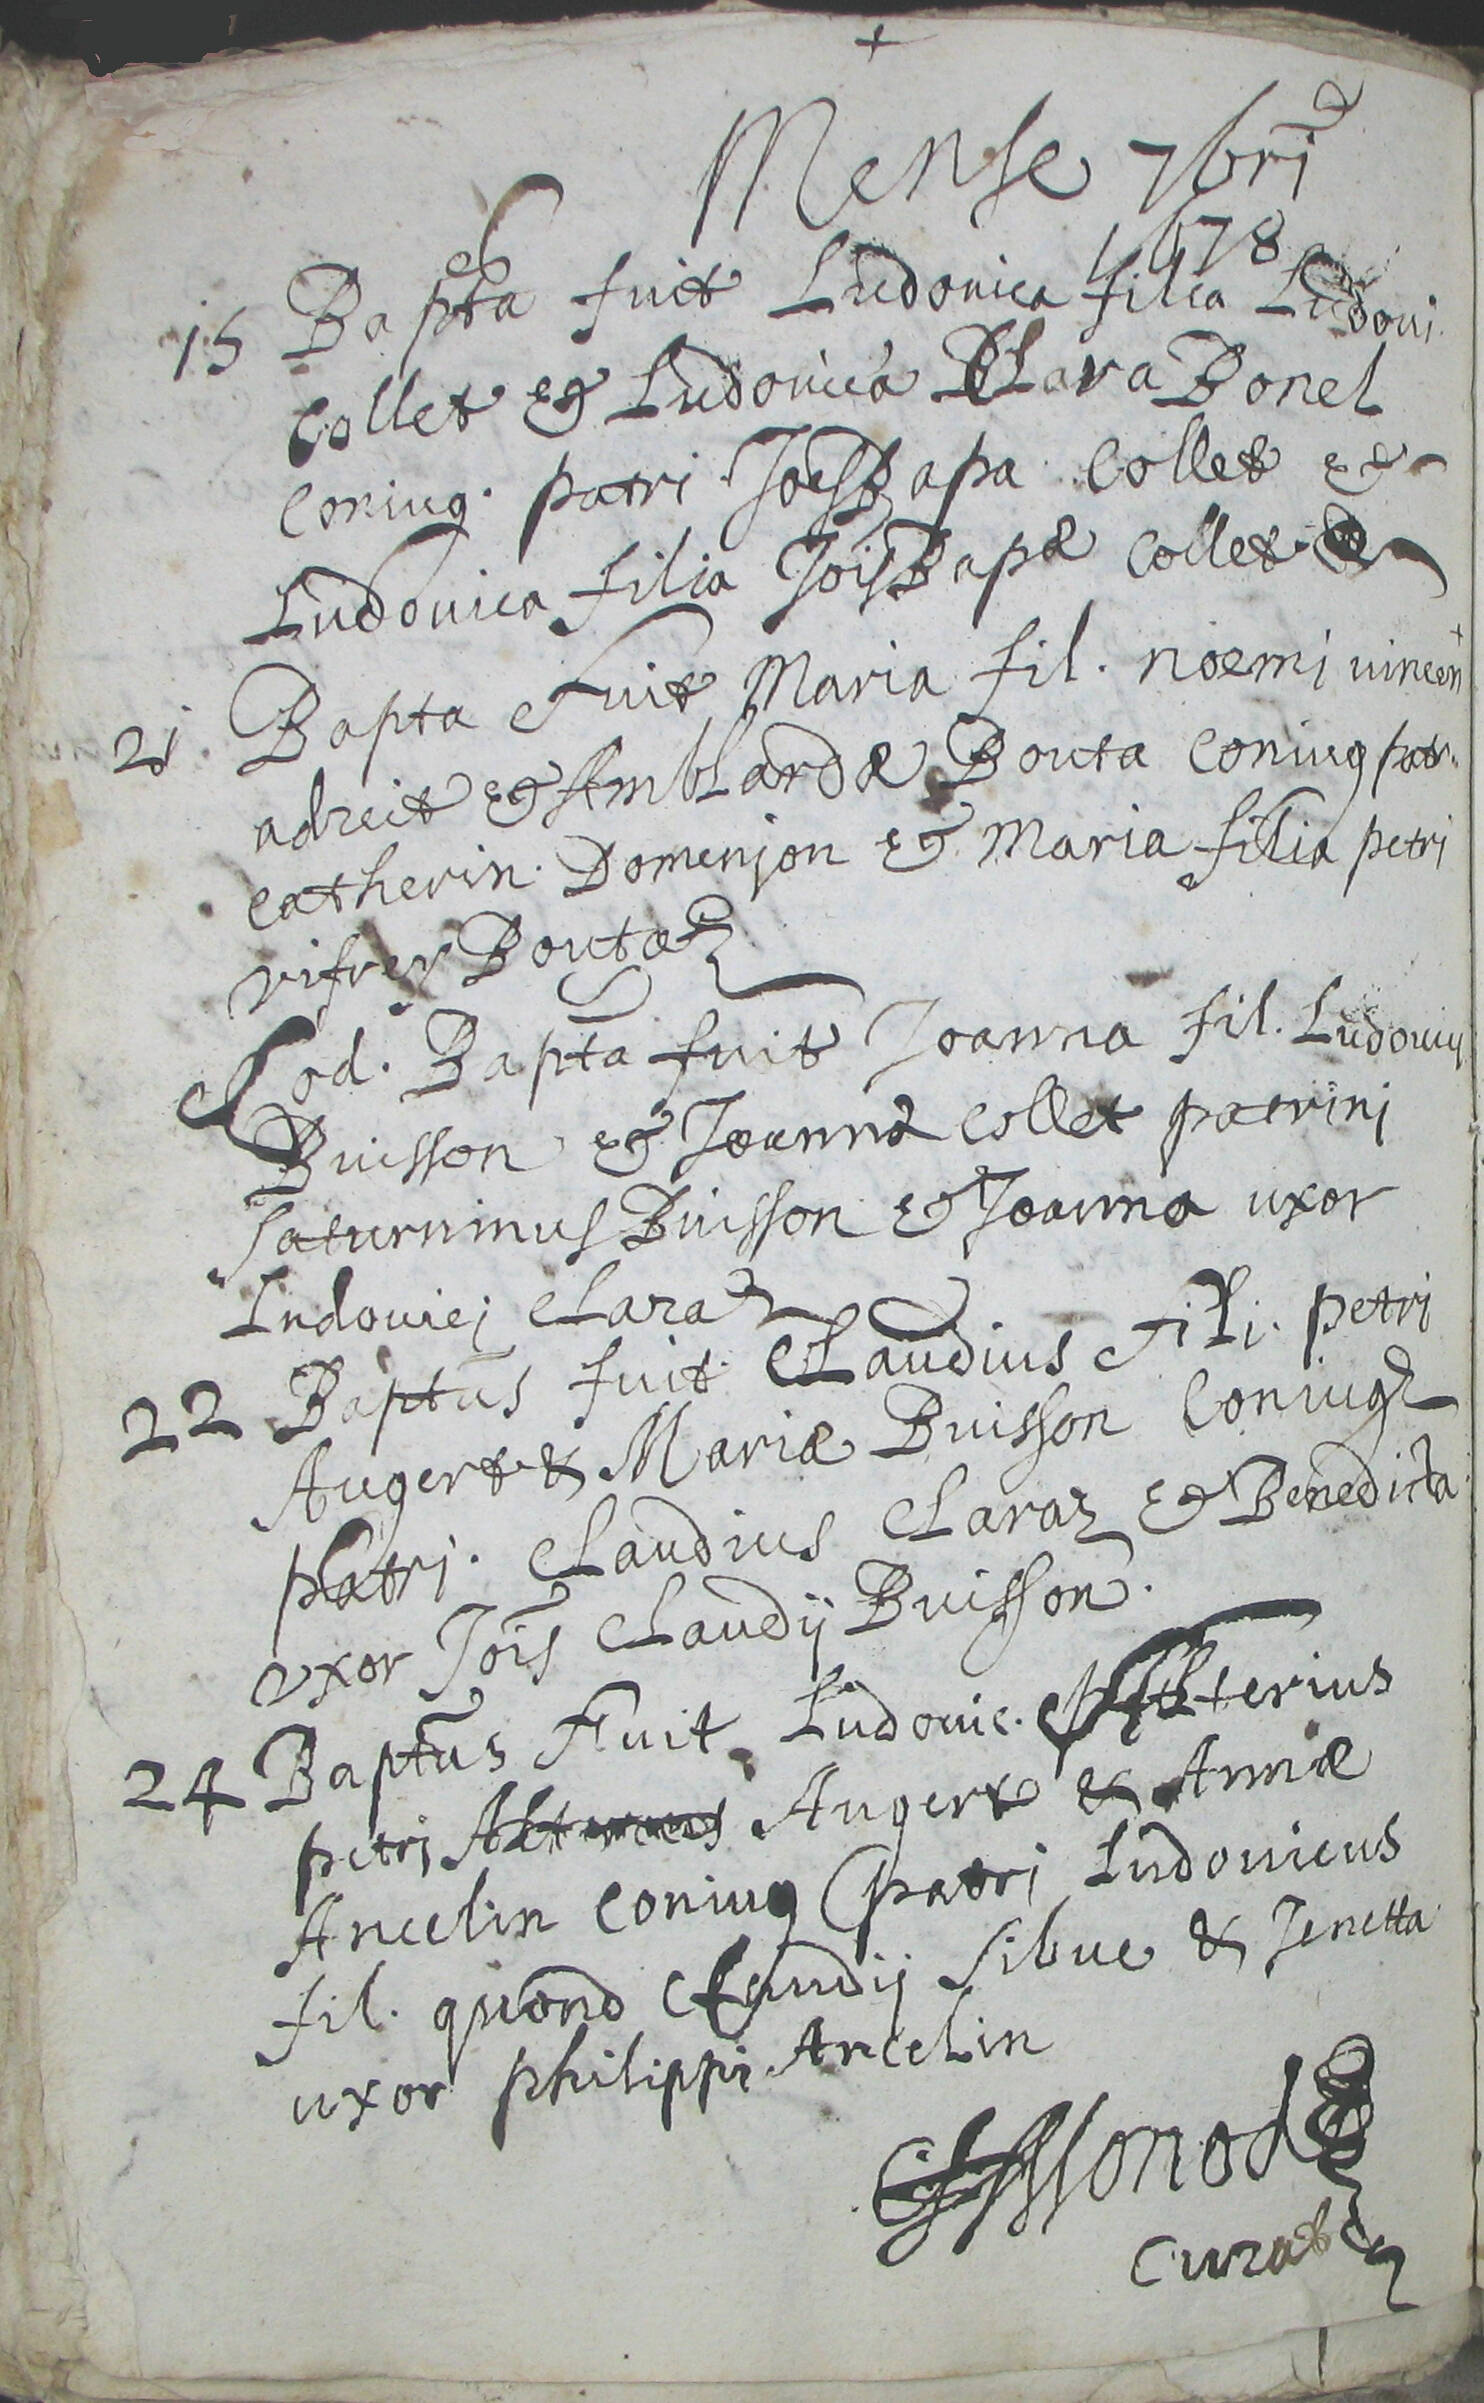 +
Mense 7bri
1678
15 Bapta fuit Ludovica filia Ludovi
Collet et Ludovica Clara Bonel
coniug. patri. Joes Bapa Collet et
Ludovica filia Jois Bapæ Collet
21 Bapta Fuit Maria fil. noemi vincen
adreit et Amblardæ Bouta coniug patr.
catherin. Domenjon et Maria filia petri
Boutaz
Eod. Bapta fuit Joanna fil. Ludovicij
Buisson et Joanna Collet patrini
Saturninus Buisson et Joanna uxor
Ludovicj Claraz
22 Baptus fuit Claudius Fili. petri
Augert & Mariæ Buisson Coniug
patri. Claudius Claraz et Benedicta
vxor Jois Claudij Buisson.
24 Baptus Fuit Ludovic.
petri Augert & Annæ
Ancelin coniug patri Ludovicus
fil. quond Claudij Silve & Jenetta
uxor philippi Ancelin
Curat